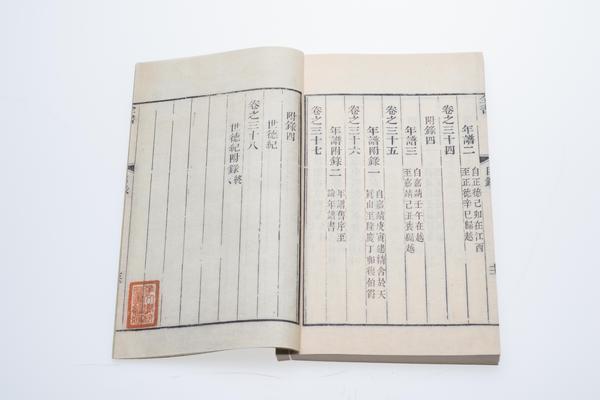 年譜二
自正德己卯在江西
至正德辛巳歸越
卷之三十四
附錄四
年譜三
自嘉靖壬午在越
至嘉靖己丑喪歸越
卷之三十五
年譜附錄一
自嘉靖庚寅建精舍於天
眞山至隆慶丁卯復伯爵
卷之三十六
年譜附錄二
年譜舊序至
論年譜書
卷之三十七
附錄四
世德紀
卷之三十八
世德紀附錄